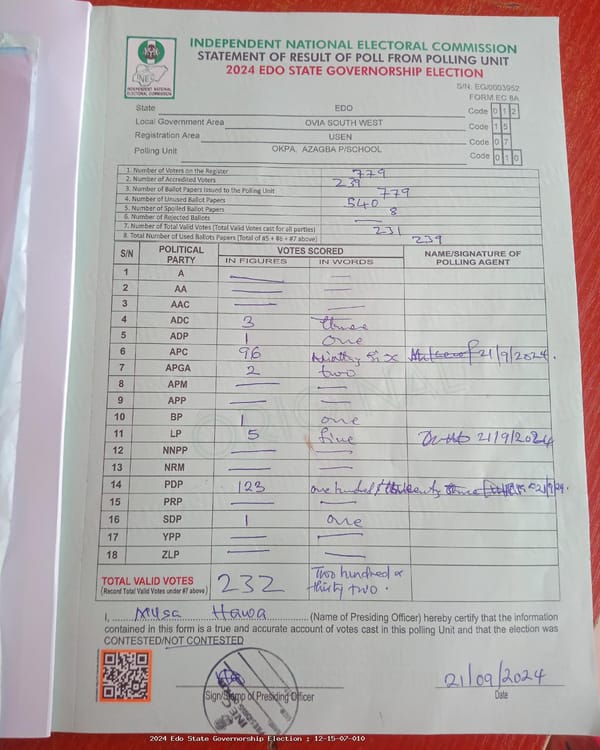 INDEPENDENT NATIONAL ELECTORAL COMMISSION
STATEMENT OF RESULT OF POLL FROM POLLING UNIT
2024 EDO STATE GOVERNORSHIP ELECTION
INEC
INDEPENDENT NATIONAL ELECTORAL COMMISSION
S/N: EG/0003952
FORM EC 8A
State EDO Code 0 1 2
Local Government Area OVIA SOUTH WEST Code 1 5
Registration Area USEN Code 0 7
Polling Unit OKPA, AZAGBA P/SCHOOL Code 0 1 0
1. Number of Voters on the Register 779
2. Number of Accredited Voters 239
3. Number of Ballot Papers Issued to the Polling Unit 779
4. Number of Unused Ballot Papers 540
5. Number of Spoiled Ballot Papers 8
6. Number of Rejected Ballots —
7. Number of Total Valid Votes (Total Valid Votes cast for all parties) 231
8. Total Number of Used Ballots Papers (Total of #5 + #6 + #7 above) 239
S/N POLITICAL PARTY VOTES SCORED NAME/SIGNATURE OF POLLING AGENT
IN FIGURES IN WORDS
1 A — —
2 AA — —
3 AAC — —
4 ADC 3 three
5 ADP 1 one
6 APC 96 Six 21/9/2024.
7 APGA 2 two
8 APM — —
9 APP — —
10 BP 1 one
11 LP 5 five 21/9/2024
12 NNPP — —
13 NRM — —
14 PDP 123 one hundred 21/9/24.
15 PRP — —
16 SDP 1 one
17 YPP — —
18 ZLP — —
TOTAL VALID VOTES 232 Two hundred &
(Record Total Valid Votes under #7 above) thirty two.
I, Musa Hawa (Name of Presiding Officer) hereby certify that the information
contained in this form is a true and accurate account of votes cast in this polling Unit and that the election was
CONTESTED/NOT CONTESTED
21/09/2024
Sign/Stamp of Presiding Officer Date
INEC
2024 Edo State Governorship Election : 12-15-07-010